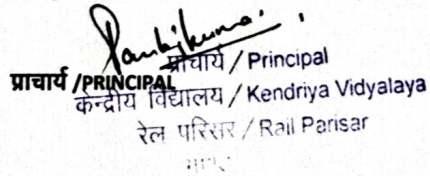 Pankajkumar.
प्राचार्य / Principal
प्राचार्य /PRINCIPAL
केन्द्रीय विद्यालय / Kendriya Vidyalaya
रेल परिसर / Rail Parisar